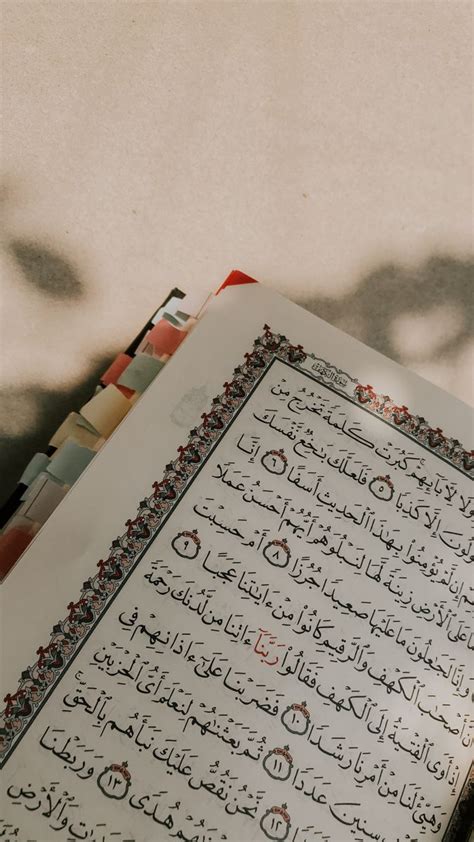 سُورَةُ الكَهْفِ
وَلَا لِأٓبَآئِهِمْ كَبُرَتْ كَلِمَةً تَخْرُجُ مِنْ
إِلَّا كَذِبًا ٥ فَلَعَلَّكَ بَٰخِعٌ نَّفْسَكَ
إِن لَّمْ يُؤْمِنُوا۟ بِهَٰذَا ٱلْحَدِيثِ أَسَفًا ٦ إِنَّا
مَا عَلَى ٱلْأَرْضِ زِينَةً لَّهَا لِنَبْلُوَهُمْ أَيُّهُمْ أَحْسَنُ عَمَلًا
وَإِنَّا لَجَٰعِلُونَ مَا عَلَيْهَا صَعِيدًا جُرُزًا ٨ أَمْ حَسِبْتَ
أَنَّ أَصْحَٰبَ ٱلْكَهْفِ وَٱلرَّقِيمِ كَانُوا۟ مِنْ ءَايَٰتِنَا عَجَبًا ٩
إِذْ أَوَى ٱلْفِتْيَةُ إِلَى ٱلْكَهْفِ فَقَالُوا۟ رَبَّنَآ ءَاتِنَا مِن لَّدُنكَ رَحْمَةً
وَهَيِّئْ لَنَا مِنْ أَمْرِنَا رَشَدًا ١٠ فَضَرَبْنَا عَلَىٰٓ ءَاذَانِهِمْ فِى
سِنِينَ عَدَدًا ١١ ثُمَّ بَعَثْنَٰهُمْ لِنَعْلَمَ أَىُّ ٱلْحِزْبَيْنِ
١٢ نَّحْنُ نَقُصُّ عَلَيْكَ نَبَأَهُم بِٱلْحَقِّ
هُدًى ١٣ وَرَبَطْنَا
وَٱلْأَرْضِ